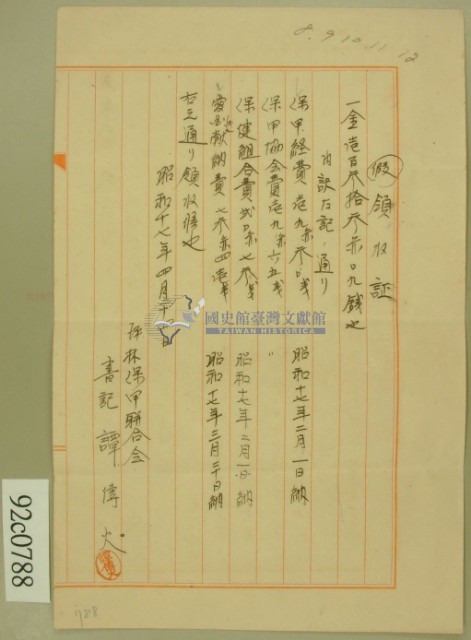 8. 9 10 11 12
假領收証
一金壱百参拾参円〇九銭也
内訳左記ノ通リ
保甲経費壱九円参〇銭 昭和十七年二月一日納
保甲協会費壱九円六五銭 〃
保健組合費弐〇円七参銭 昭和十七年二月一日納
愛国献納費七参円四壱銭 昭和十七年三月三十日納
右之通り領收候也
昭和十七年四月十日
坪林保甲聯合会
書記 譚
國史館臺灣文獻館
TAIWAN HISTORICA
92c0788
788